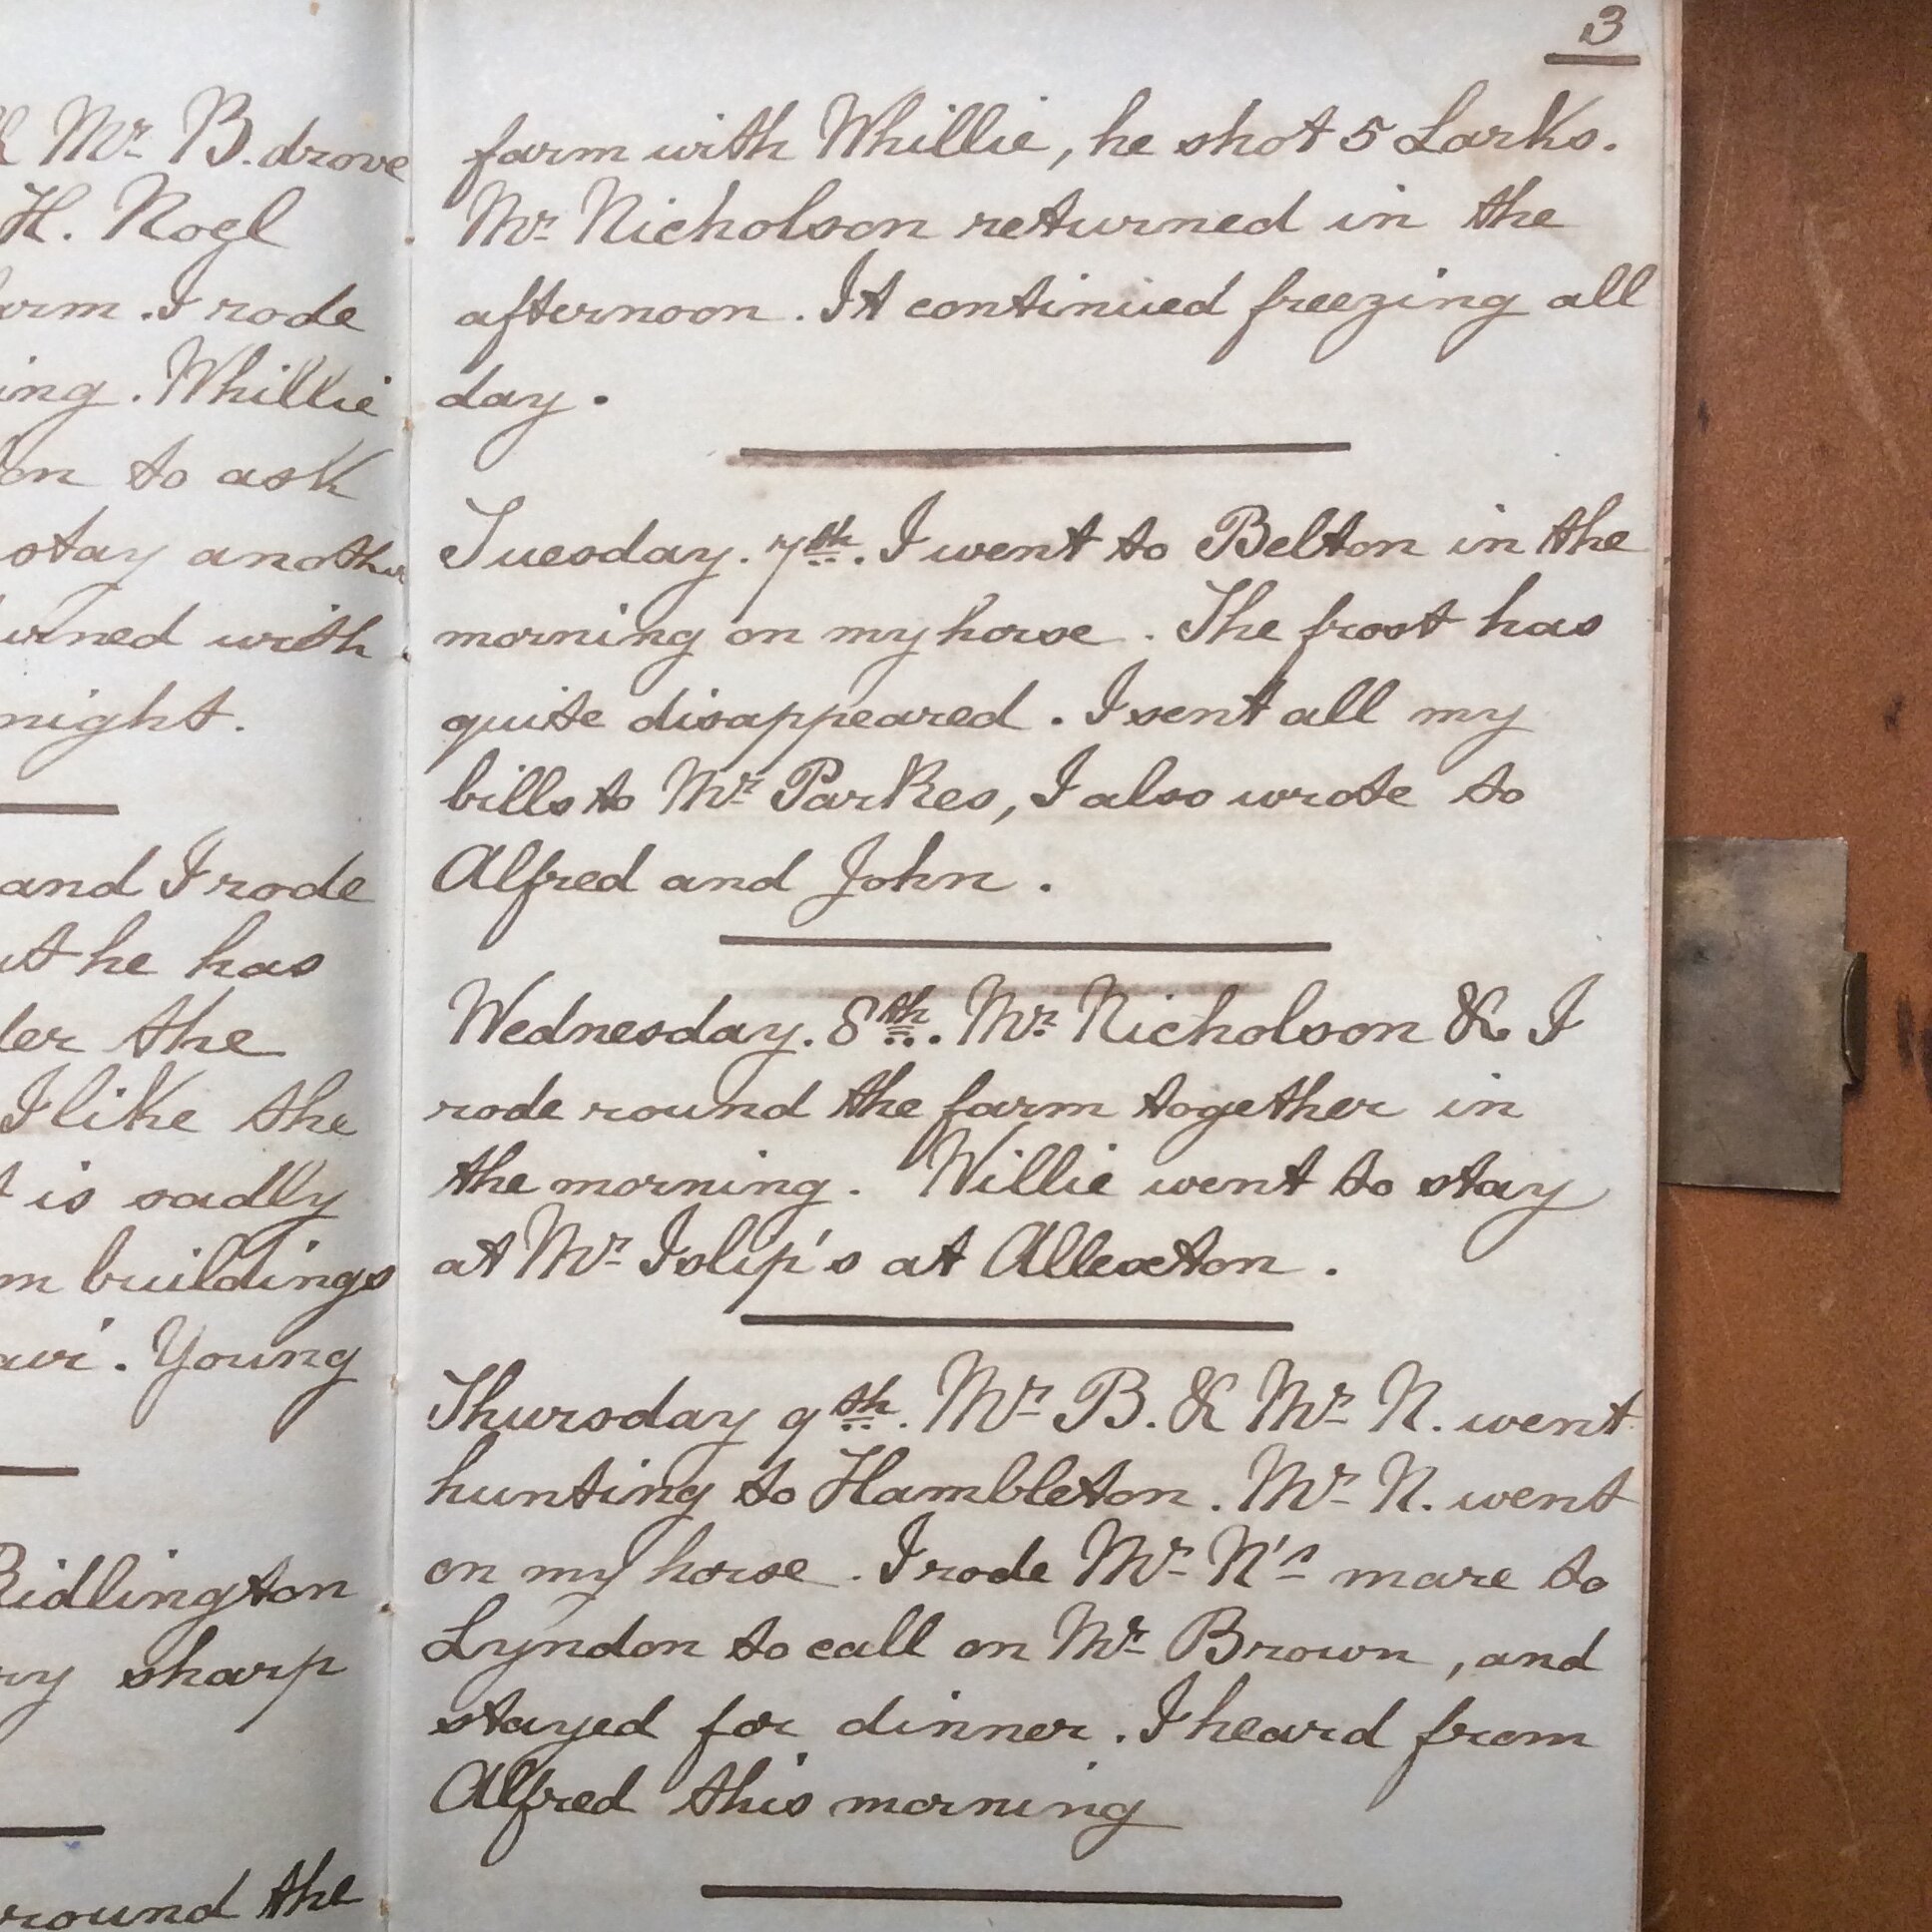 & Mr B. drove
H. Noel
arm. I rode
ing. Whillie
on to ask
stay another
urned with
night.
and I rode
ut he has
der the
I like the
t is sadly
m buildings
avi. Young
Ridlington
ry sharp
round the
3
farm with Whillie, he shot 5 Larks.
Mr Nicholson returned in the
afternoon. It continued freezing all
day.
Tuesday. 7th. I went to Belton in the
morning on my horse. The frost has
quite disappeared. I sent all my
bills to Mr Parkes, I also wrote to
Alfred and John.
Wednesday. 8th. Mr Nicholson & I
rode round the farm together in
the morning. Willie went to stay
at Mr Islip's at Allexton.
Thursday 9th. Mr B. & Mr N. went
hunting to Hambleton. Mr N. went
on my horse. I rode Mr N's mare to
Lyndon to call on Mr Brown, and
stayed for dinner. I heard from
Alfred this morning